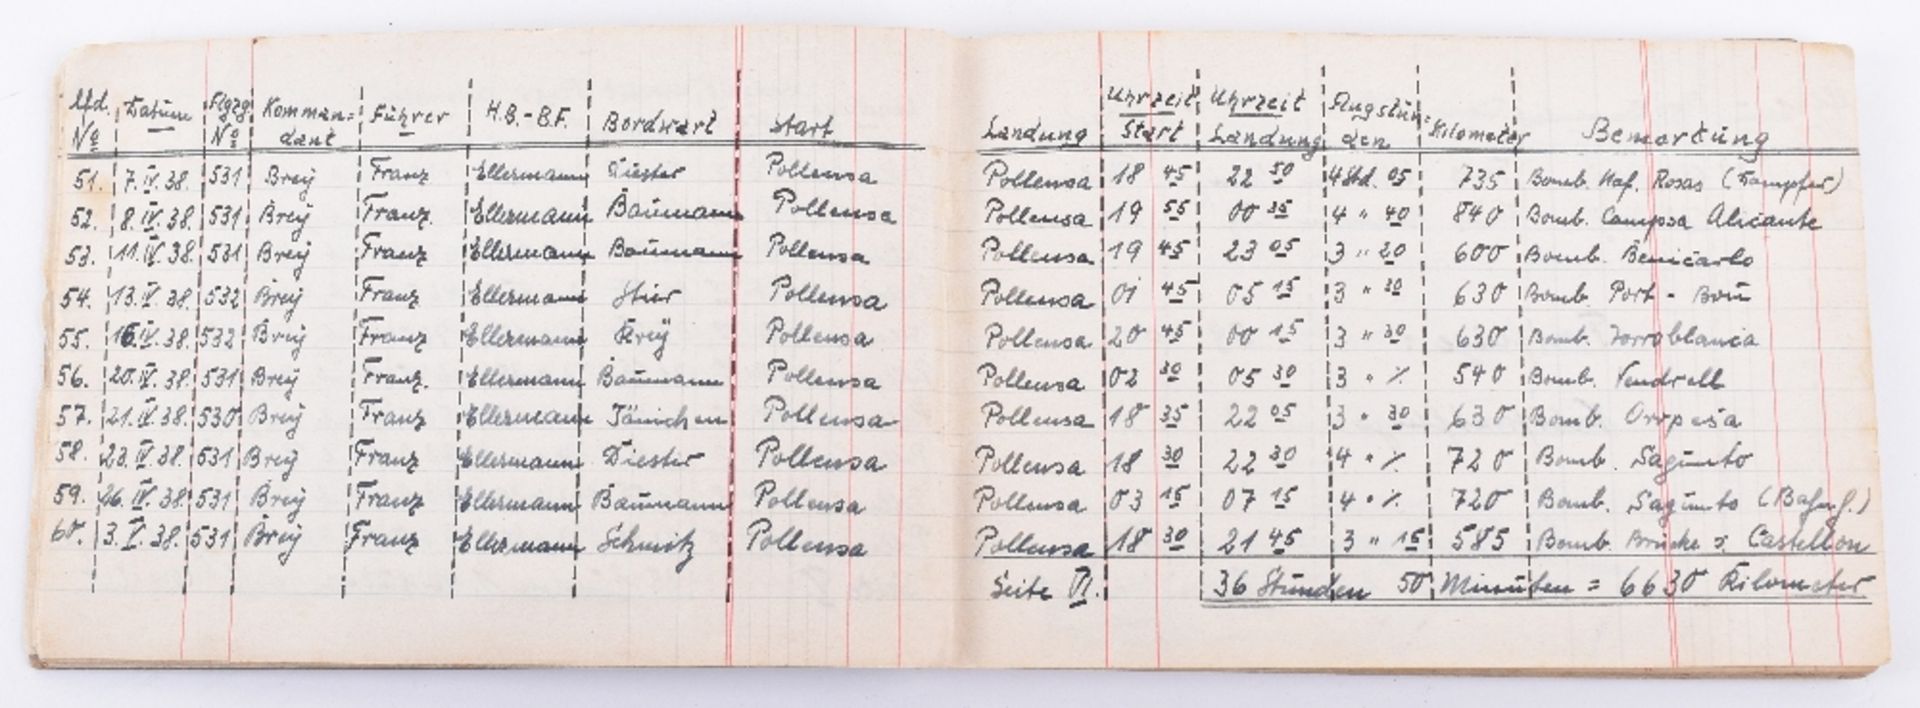 Lfd. Nº Datum Flgzg Nº Komman=dant Führer H.B.-B.F. Bordwart Start Landung Uhrzeit Start Uhrzeit Landung Flugstun=den Kilometer Bemerkung
51. 7.IV.38. 531 Brey Franz Ellermann Diester Pollensa Pollensa 18 45 22 50 4 Std. 05 735 Bomb. Haf. Rosas (Dampfer)
52. 8.IV.38. 531 Brey Franz. Ellermann Baumann Pollensa Pollensa 19 55 00 35 4 " 40 840 Bomb. Campsa Alicante
53. 11.IV.38. 531 Brey Franz Ellermann Baumann Pollensa Pollensa 19 45 23 05 3 " 20 600 Bomb. Benicarlo
54. 13.IV.38. 532 Brey Franz Ellermann Stier Pollensa Pollensa 01 45 05 15 3 " 30 630 Bomb. Port-Bou
55. 16.IV.38. 532 Brey Franz Ellermann Krey Pollensa Pollensa 20 45 00 15 3 " 30 630 Bomb. Torroblanca
56. 20.IV.38. 531 Brey Franz. Ellermann Baumann Pollensa Pollensa 02 30 05 30 3 " % 540 Bomb. Vendrell
57. 21.IV.38. 530 Brey Franz Ellermann Jänichen Pollensa Pollensa 18 35 22 05 3 " 30 630 Bomb. Orrpesa
58. 23.IV.38. 531 Brey Franz Ellermann Diester Pollensa Pollensa 18 30 22 30 4 " % 720 Bomb. Sagunto
59. 26.IV.38. 531 Brey Franz Ellermann Baumann Pollensa Pollensa 03 15 07 15 4 " % 720 Bomb. Sagunto (Bahnh.)
60. 3.V.38. 531 Brey Franz Ellermann Schmitz Pollensa Pollensa 18 30 21 45 3 " 15 585 Bomb. Brücke s. Castellon
Seite VI. 36 Stunden 50 Minuten = 6630 Kilometer